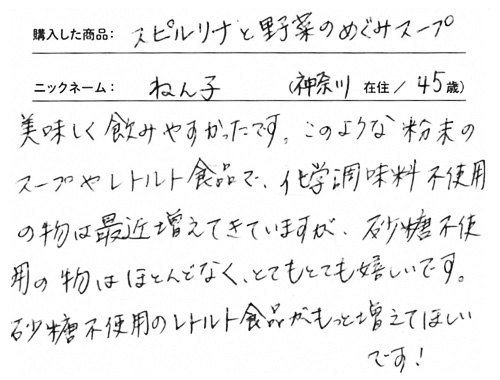 購入した商品： スピルリナと野菜のめぐみスープ
ニックネーム： ねん子 （神奈川 在住 / 45歳）
美味しく飲みやすかったです。このような粉末の
スープやレトルト食品で、化学調味料不使用
の物は最近増えてきていますが、砂糖不使
用の物はほとんどなく、とてもとても嬉しいです。
砂糖不使用のレトルト食品がもっと増えてほしい
です！